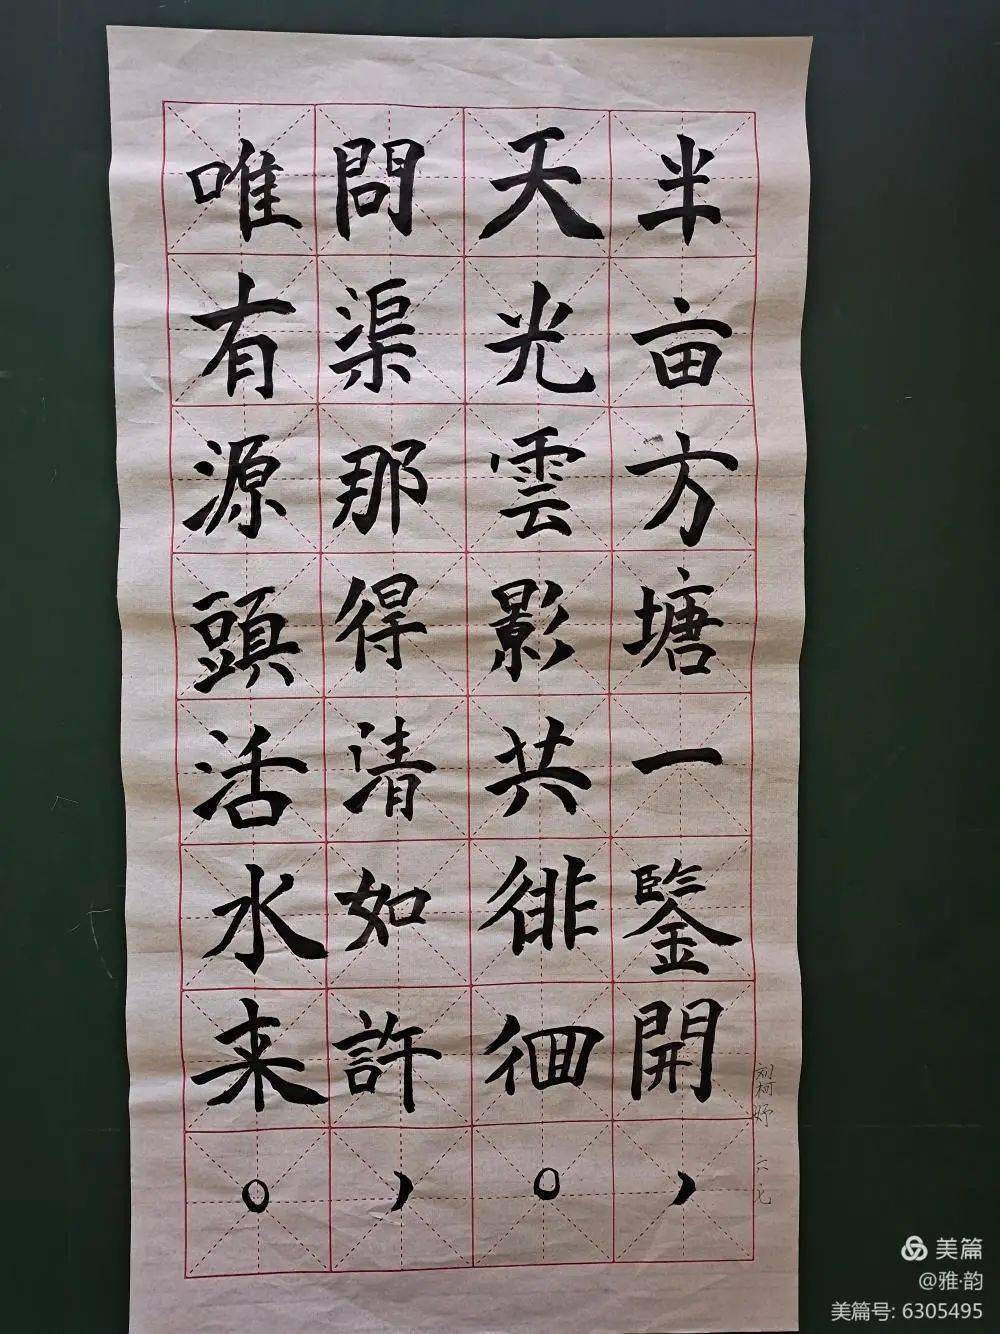 半亩方塘一鑒開，
天光雲影共徘徊。
問渠那得清如許，
唯有源頭活水来。
刘柯妤 六七
美篇
@雅·韵
美篇号: 6305495